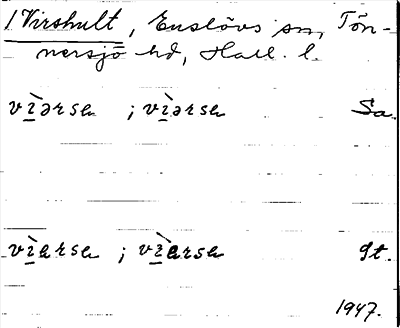 1 Virshult, Enslövs sn, Tön-
nersjö hd, Hall. l.
vì̲ərsa ; vì̲ərsa Sa.
vì̲ersa ; vì̲ersa gt.
1947.